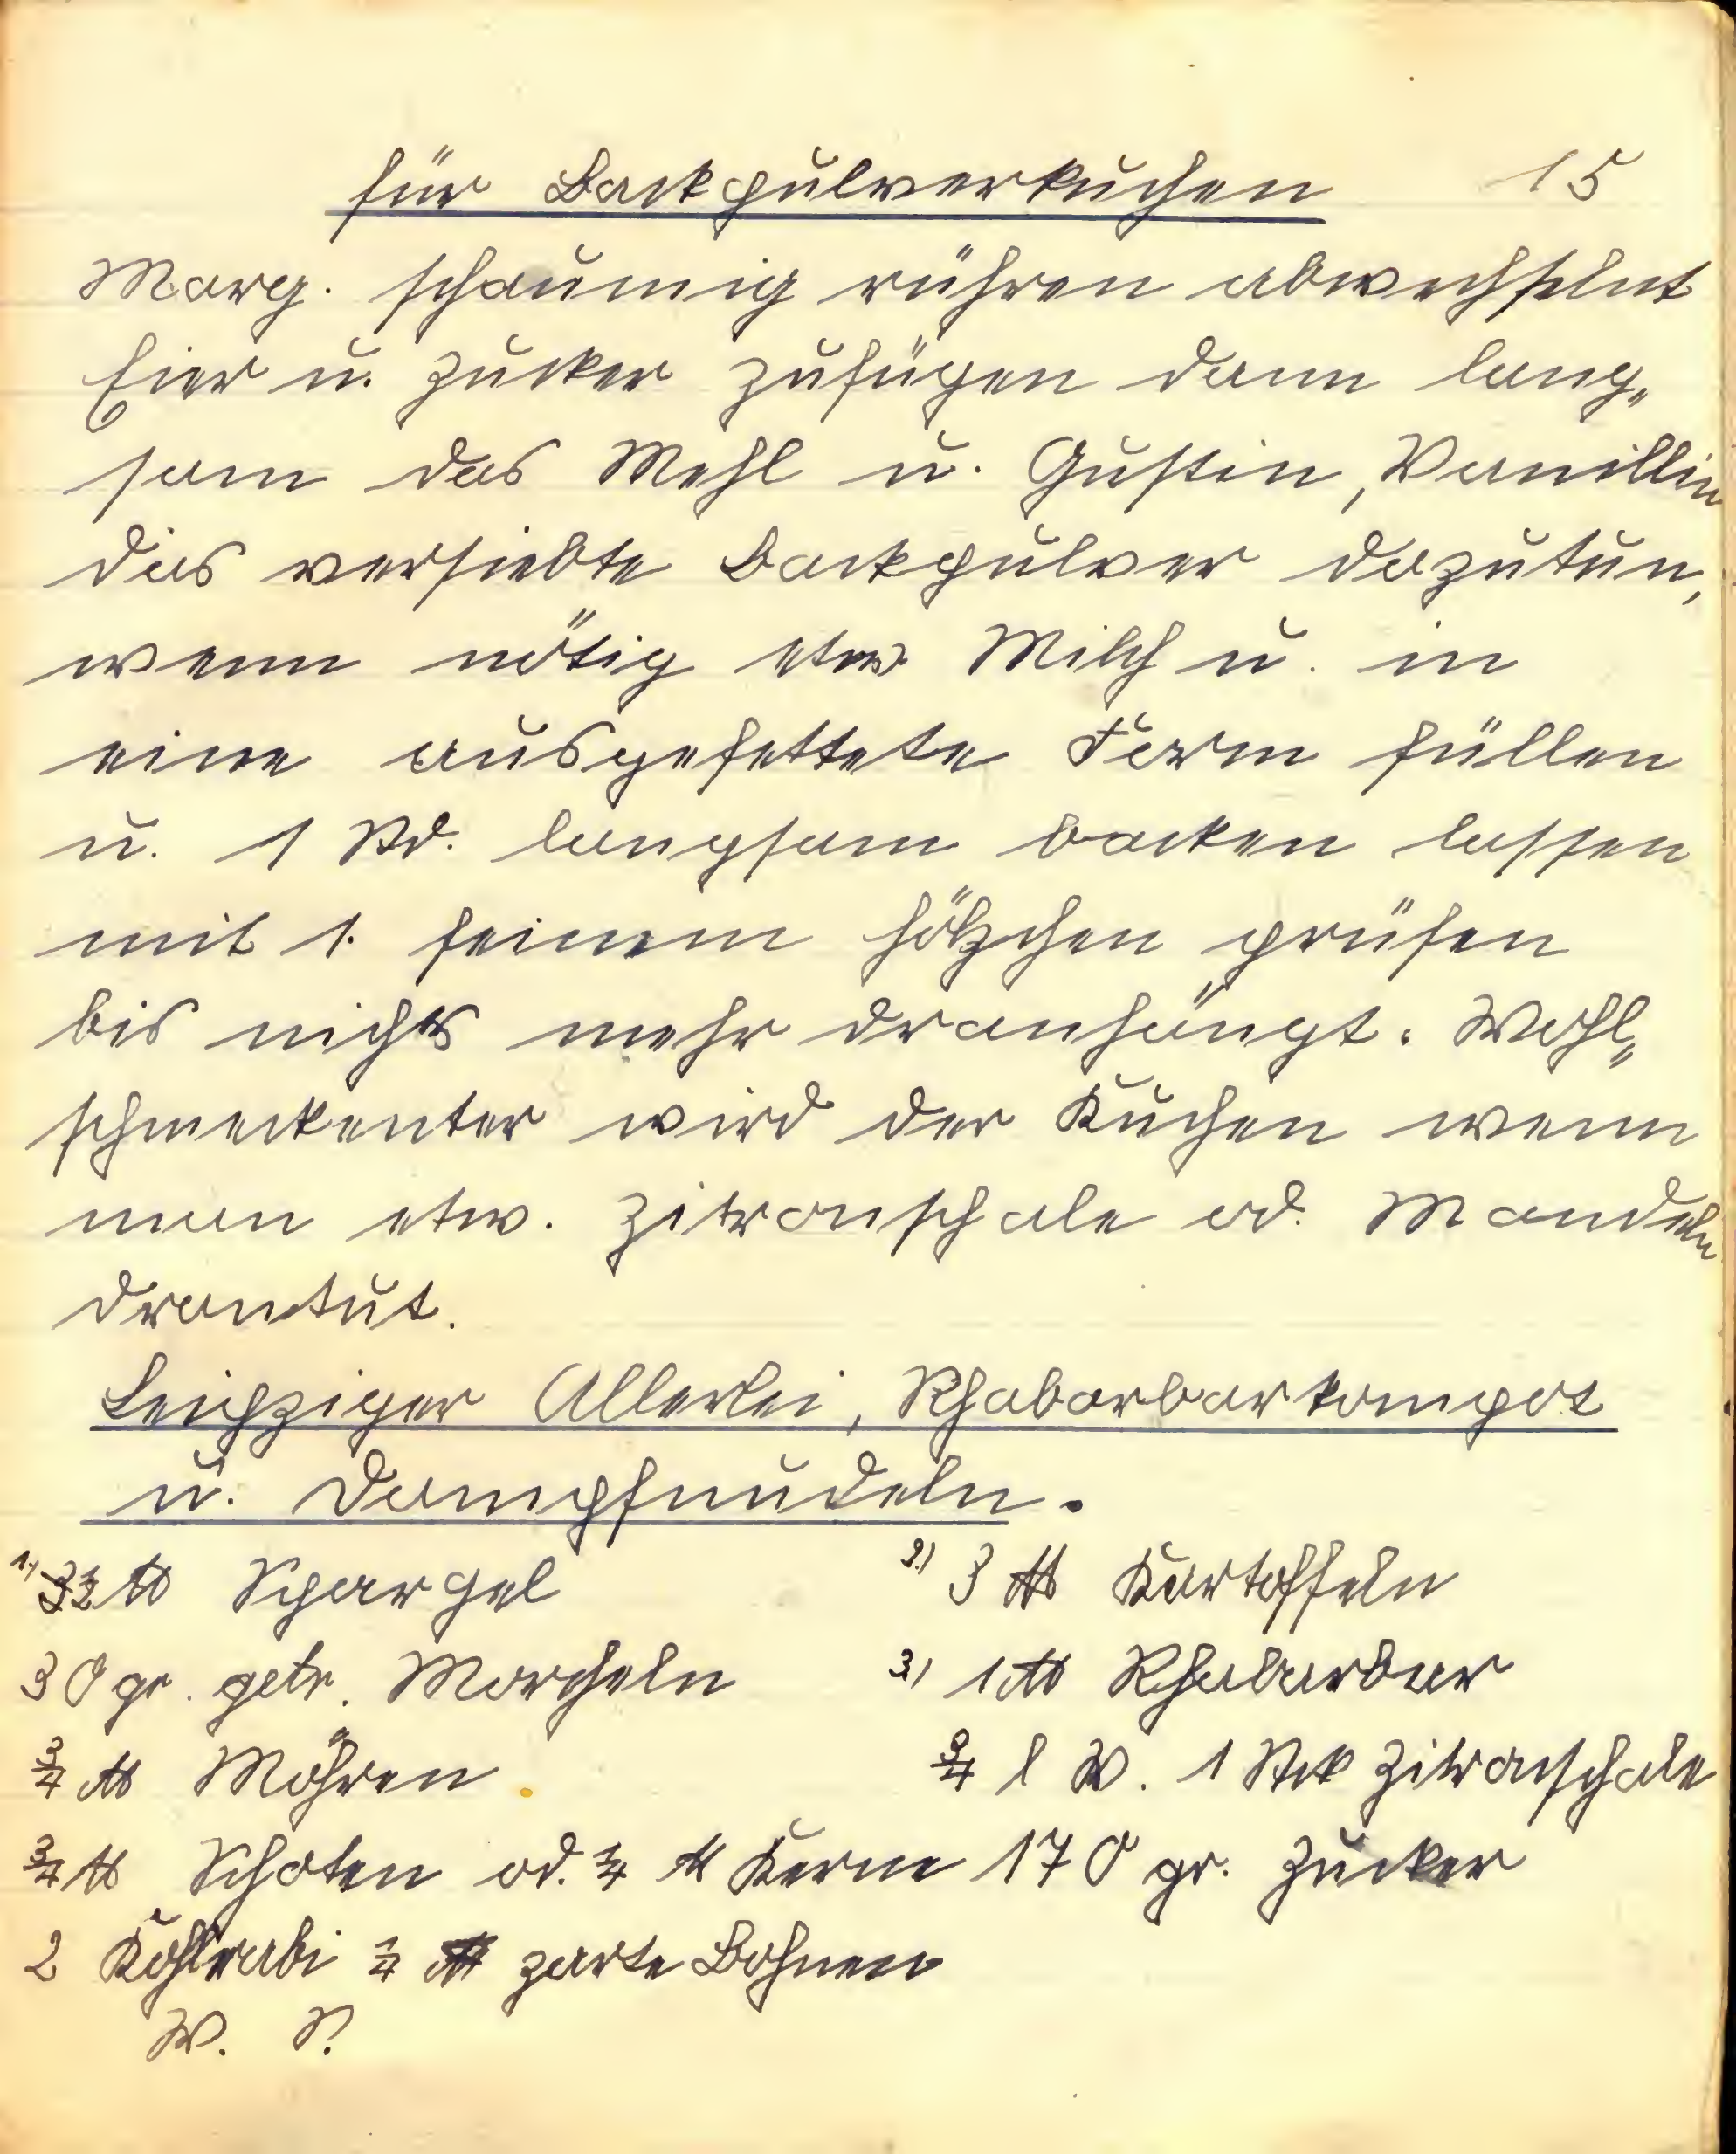 für Backpulverkuchen 15
Marg. schaumig rühren abwechselnt
Eier u. Zucker zufügen dann lang„
sam das Mehl u. Gustin, Vanillin
das versiebte Backpulver dazutun,
wenn nötig etw Milch u. in
eine ausgefettete Form füllen
u. 1 Std. langsam backen lassen
mit 1. feinem Hölzchen prüfen
bis nichts mehr dranhängt. Wohl„
schmeckenter wird der Kuchen wenn
man etw. Zitronschale od. Mandeln
drantut.
Leipziger Allerlei, Rhabarbarkompot
u. Dampfnudeln.
1.) ℔ Spargel 2.) 3 ℔ Kartoffeln
30 gr. getr. Morcheln 3.) 1 ℔ Rhabarbar
3/4 ℔ Möhren 3/4 l W. 1 Stck Zitronschale
3/4 ℔ Schoten od. 1/4 ℔ Kerne 170 gr. Zucker
2 Kohlrabi 1/4 ℔ zarte Bohnen
W. S.